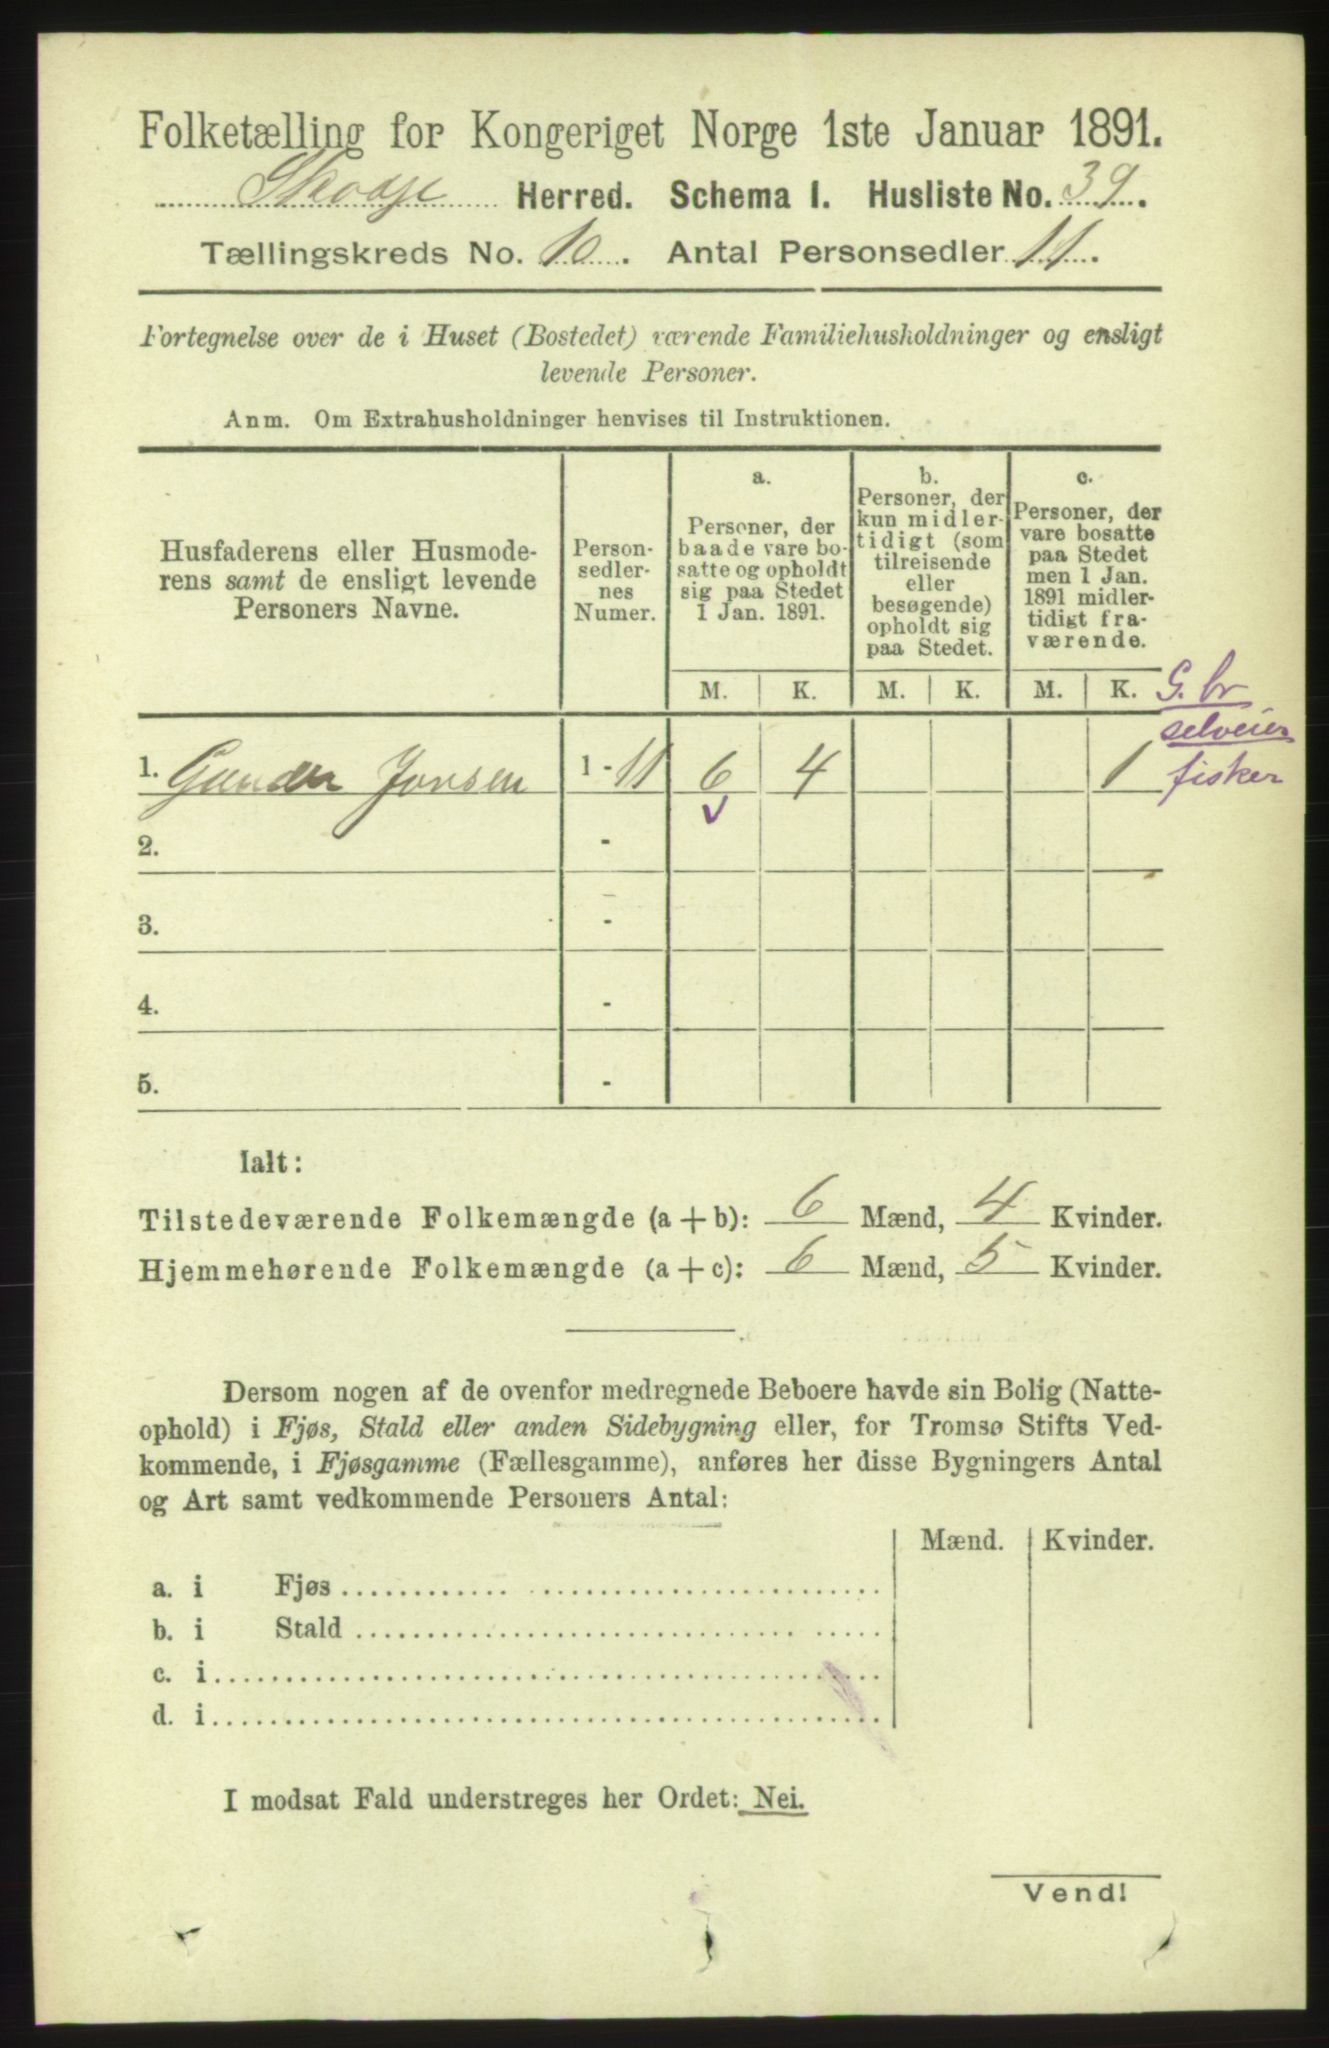 Folketælling for Kongeriget Norge 1ste Januar 1891.
Skodje Herred. Schema I. Husliste No. 39.
Tællingskreds No. 10. Antal Personsedler 11.
Fortegnelse over de i Huset (Bostedet) værende Familiehusholdninger og ensligt
levende Personer.
Anm. Om Extrahusholdninger henvises til Instruktionen.
Husfaderens eller Husmode-
rens samt de ensligt levende
Personers Navne.
Person-
sedler-
nes
Numer.
a.
Personer, der
baade vare bo-
satte og opholdt
sig paa Stedet
1 Jan. 1891.
b.
Personer, der
kun midler-
tidigt (som
tilreisende
eller
besøgende)
opholdt sig
paa Stedet.
c.
Personer, der
vare bosatte
paa Stedet
men 1 Jan.
1891 midler-
tidigt fra-
værende.
M. K. M. K. M. K. G.br
selveier
1. Gunder Jonsen 1 - 11 6 4 1 fisker
2. -
3. -
4. -
5. -
Ialt:
Tilstedeværende Folkemængde (a + b): 6 Mænd, 4 Kvinder.
Hjemmehørende Folkemængde (a + c): 6 Mænd, 5 Kvinder.
Dersom nogen af de ovenfor medregnede Beboere havde sin Bolig (Natte-
ophold) i Fjøs, Stald eller anden Sidebygning eller, for Tromsø Stifts Ved-
kommende, i Fjøsgamme (Fællesgamme), anføres her disse Bygningers Antal
og Art samt vedkommende Personers Antal:
Mænd. Kvinder.
a. i Fjøs
b. i Stald
c. i
d. i
I modsat Fald understreges her Ordet: Nei.
Vend!